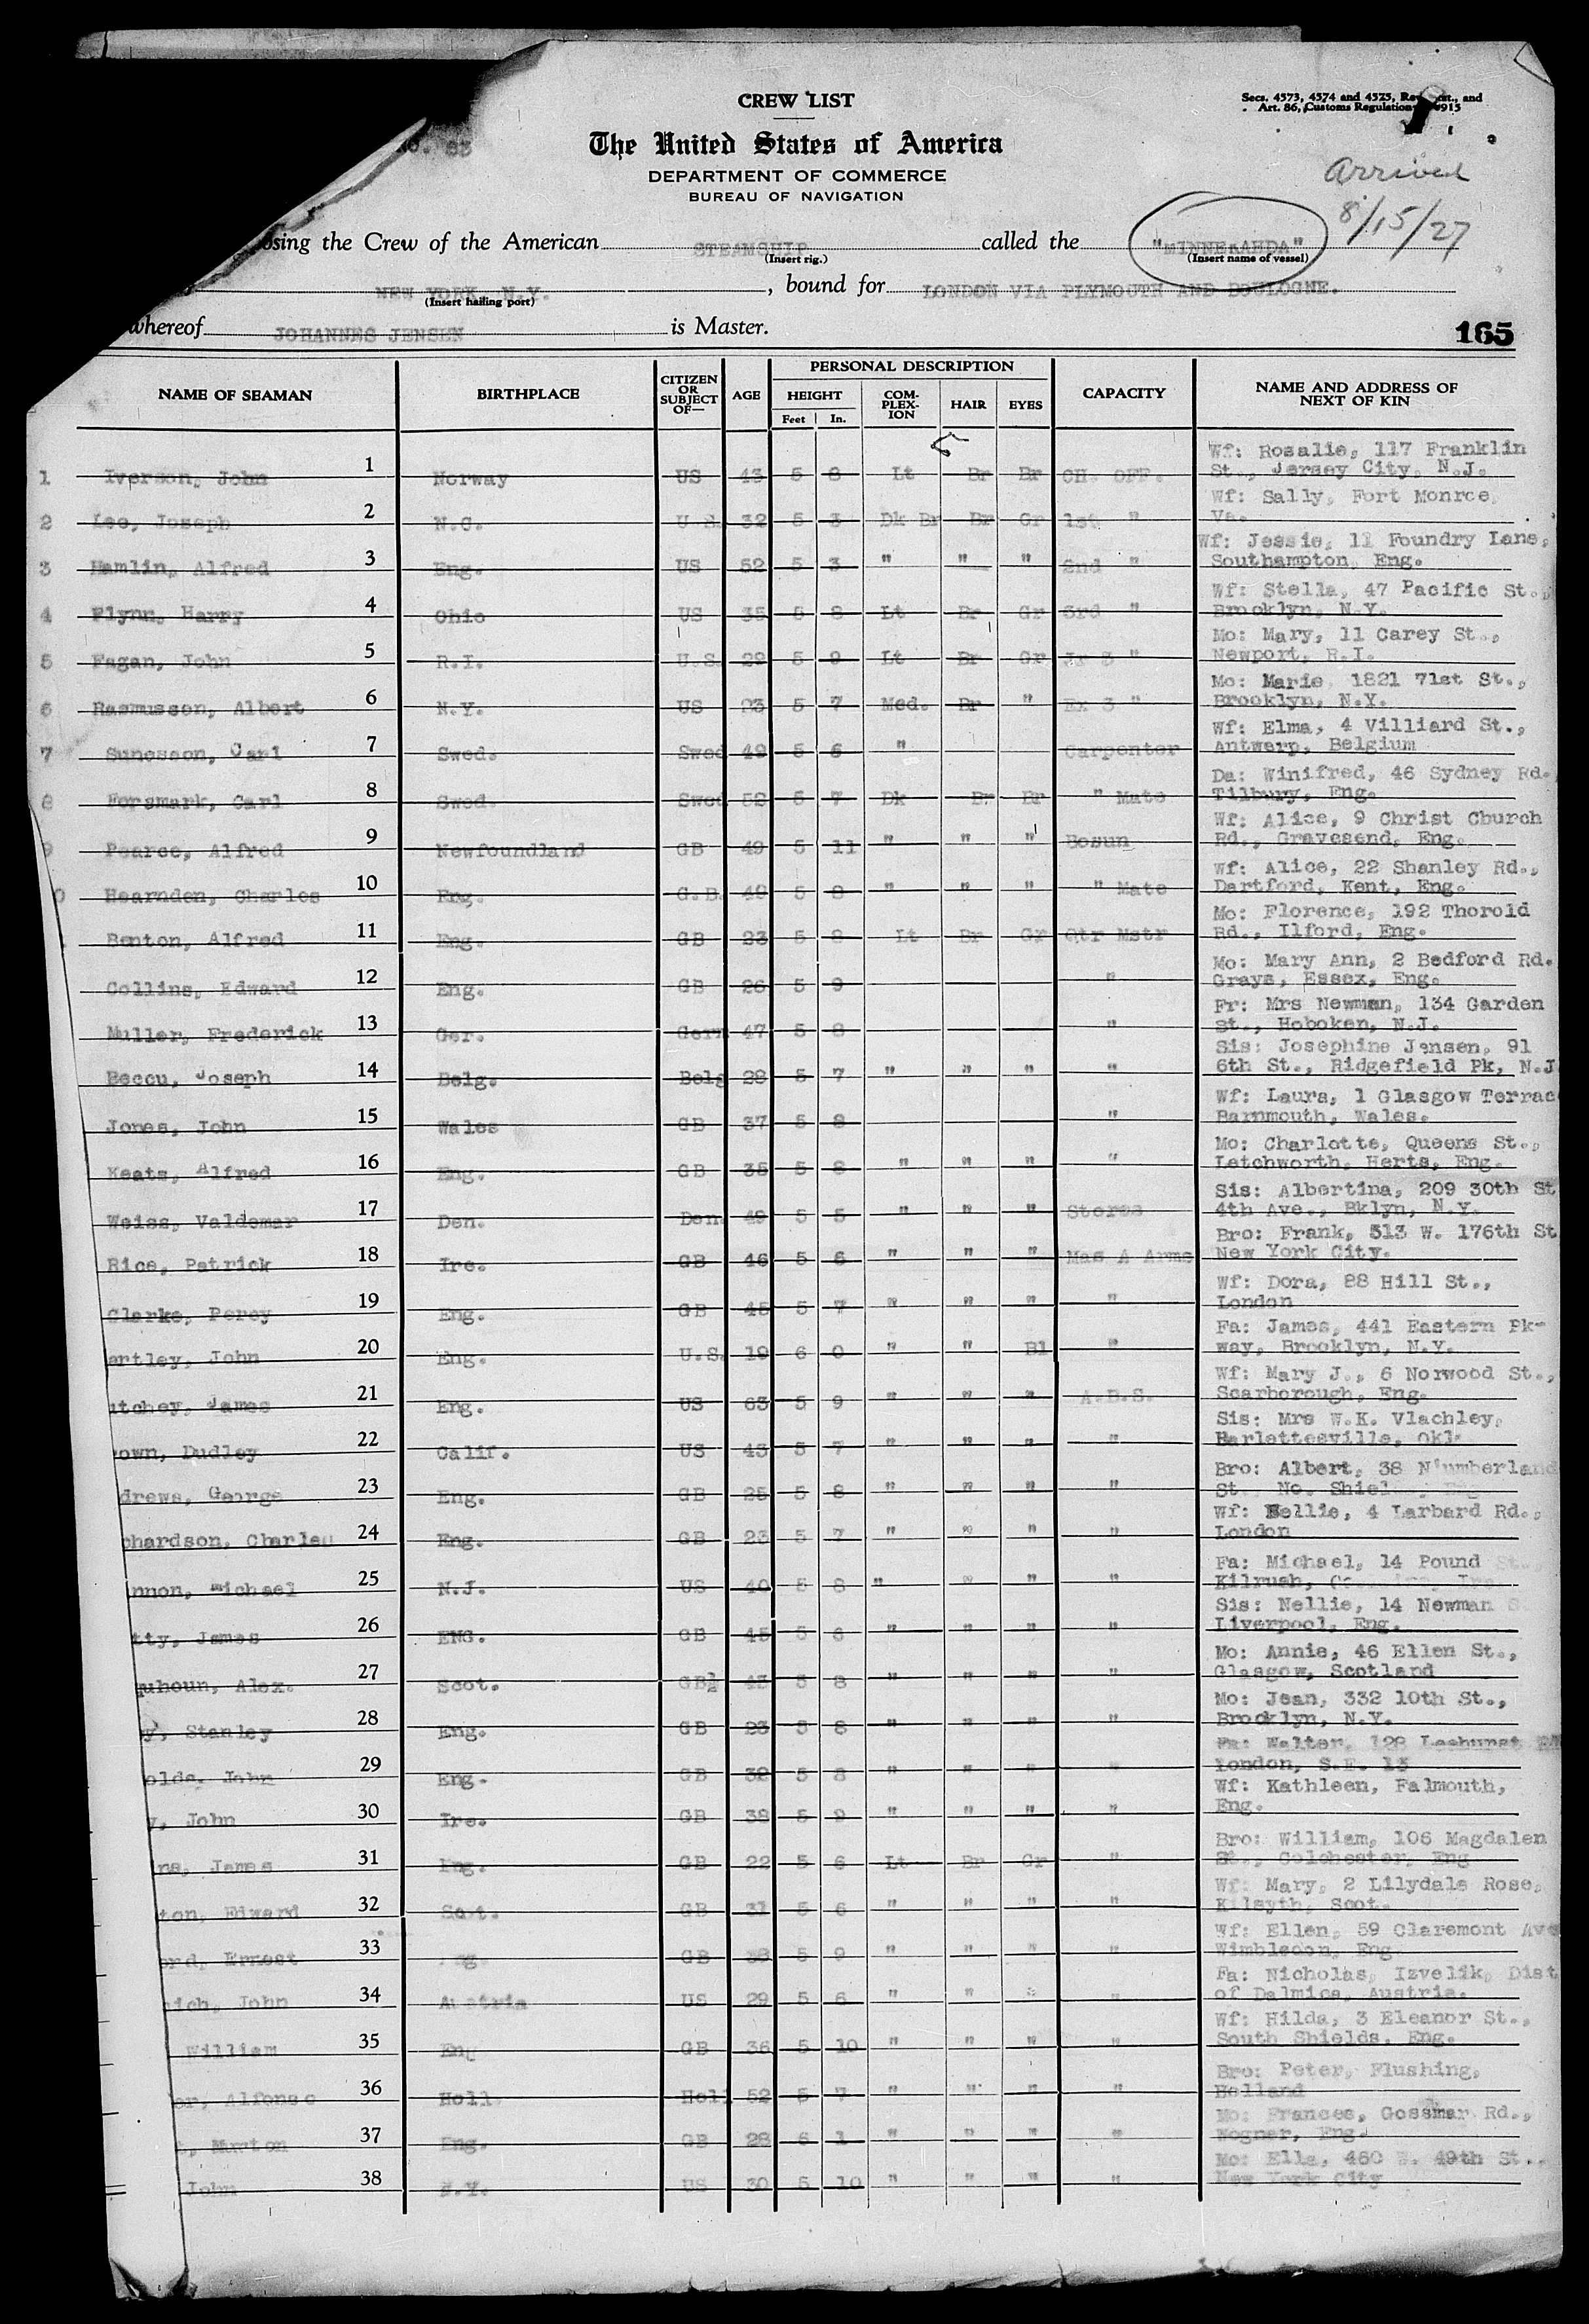 CREW LIST
Secs. 4573, 4574 and 4575, Rev. Stat., and
Art. 86, Customs Regulations 1915
No. 83
The United States of America
DEPARTMENT OF COMMERCE
BUREAU OF NAVIGATION
Arrived
8/15/27
osing the Crew of the American STEAMSHIP called the "MINNEKAHDA"
(Insert rig.) (Insert name of vessel)
NEW YORK, N.Y. , bound for LONDON VIA PLYMOUTH AND BOULOGNE.
(Insert hailing port)
whereof JOHANNES JENSEN is Master.
165
NAME OF SEAMAN BIRTHPLACE CITIZEN OR SUBJECT OF— AGE PERSONAL DESCRIPTION CAPACITY NAME AND ADDRESS OF NEXT OF KIN
HEIGHT COM-PLEX-ION HAIR EYES
Feet In.
Wf: Rosalie, 117 Franklin
1 Iverson, John 1 Norway US 43 5 8 Lt Br Br CH. OFF. St., Jersey City, N.J.
Wf: Sally, Fort Monroe,
2 Lee, Joseph 2 N.C. U.S. 32 5 3 Dk Br Br Gr 1st " Va.
Wf: Jessie, 11 Foundry Lane,
3 Hamlin, Alfred 3 Eng. US 52 5 3 " " " 2nd " Southampton, Eng.
Wf: Stella, 47 Pacific St.,
4 Flynn, Harry 4 Ohio US 35 5 8 Lt Br Gr 3rd " Brooklyn, N.Y.
Mo: Mary, 11 Carey St.,
5 Fagan, John 5 R.I. U.S. 29 5 9 Lt Br Gr Jr 3 " Newport, R.I.
Mo: Marie 1821 71st St.,
6 Rasmussen, Albert 6 N.Y. US 23 5 7 Med. Br " Ex 3 " Brooklyn, N.Y.
Wf: Elma, 4 Villiard St.,
7 Sunesson, Carl 7 Swed. Swed 49 5 6 " Carpenter Antwerp, Belgium
Da: Winifred, 46 Sydney Rd.
8 Forsmark, Carl 8 Swed. Swed 52 5 7 Dk Br Br " Mate Tilbury, Eng.
Wf: Alice, 9 Christ Church
9 Pearce, Alfred 9 Newfoundland GB 49 5 11 " " " Bosun Rd., Gravesend, Eng.
Wf: Alice, 22 Shanley Rd.,
0 Hearnden, Charles 10 Eng. G.B. 49 5 8 " " " " Mate Dartford, Kent, Eng.
Mo: Florence, 192 Thorold
Benton, Alfred 11 Eng. GB 23 5 8 Lt Br Gr Qtr Mstr Rd., Ilford, Eng.
Mo: Mary Ann, 2 Bedford Rd.
Collins, Edward 12 Eng. GB 26 5 9 " Grays, Essex, Eng.
Fr: Mrs Newman, 134 Garden
Muller, Frederick 13 Ger. Germ 47 5 8 " St., Hoboken, N.J.
Sis: Josephine Jensen, 91
Beccu, Joseph 14 Belg. Belg 28 5 7 " " " " 6th St., Ridgefield Pk, N.J
Wf: Laura, 1 Glasgow Terrac
Jones, John 15 Wales GB 37 5 8 " Barnmouth, Wales.
Mo: Charlotte, Queens St.,
Keats, Alfred 16 Eng. GB 35 5 8 " " " " Letchworth, Herts, Eng.
Sis: Albertina, 209 30th St
Weiss, Valdemar 17 Den. Den. 49 5 5 " " " Stores 4th Ave., Bklyn, N.Y.
Bro: Frank, 513 W. 176th St
Rice, Patrick 18 Ire. GB 46 5 6 " " " Mas A Arms New York City.
Wf: Dora, 28 Hill St.,
Clarke, Percy 19 Eng. GB 45 5 7 " " " " London
Fa: James, 441 Eastern Pk-
artley, John 20 Eng. U.S. 19 6 0 " " Bl " way, Brooklyn, N.Y.
Wf: Mary J., 6 Norwood St.,
utchey, James 21 Eng. US 63 5 9 " " " A.B.S. Scarborough, Eng.
Sis: Mrs W.K. Vlachley,
rown, Dudley 22 Calif. US 43 5 7 " " " " Barlettesville, Okl.
Bro: Albert, 38 N'umberland
drews, George 23 Eng. GB 25 5 8 " " " " St. No. Shiel
Wf: Nellie, 4 Larbard Rd.,
chardson, Charles 24 Eng. GB 23 5 7 " " " " London
Fa: Michael, 14 Pound St.,
nnon, Michael 25 N.J. US 40 5 8 " " " " Kilrush,
Sis: Nellie, 14 Newman S
tty, James 26 ENG. GB 45 5 6 " " " " Liverpool, Eng.
Mo: Annie, 46 Ellen St.,
quhoun, Alex. 27 Scot. GB½ 43 5 8 " " " " Glasgow, Scotland
Mo: Jean, 332 10th St.,
y, Stanley 28 Eng. GB 23 5 8 " " " " Brooklyn, N.Y.
Fa: Walter, 128 Leahurst
olds, John 29 Eng. GB 32 5 8 " " " " London, S.E. 13
Wf: Kathleen, Falmouth,
y, John 30 Ire. GB 38 5 9 " " " " Eng.
Bro: William, 106 Magdalen
ns, James 31 Eng. GB 22 5 6 Lt Br Gr " St., Colchester, Eng
Wf: Mary, 2 Lilydale Rose,
ton, Edward 32 Scot. GB 31 5 6 " " " " Kilsyth, Scot.
Wf: Ellen, 59 Claremont Ave
ord, Ernest 33 GB 38 5 9 " " " " Wimbledon, Eng
Fa: Nicholas, Izvelik, Dist
ich, John 34 Austria US 29 5 6 " " " " of Dalmica, Austria.
Wf: Hilda, 3 Eleanor St.,
William 35 Eng GB 36 5 10 " " " " South Shields, Eng.
Bro: Peter, Flushing,
or, Alfonso 36 Holl. Holl 52 5 7 " " " " Holland
Mo: Frances, Gossmar Rd.,
37 Eng. GB 28 6 1 " " " " Wogner, Eng.
Mo: Ella, 460 W. 49th St.,
John 38 N.Y. US 30 5 10 " " " " New York City